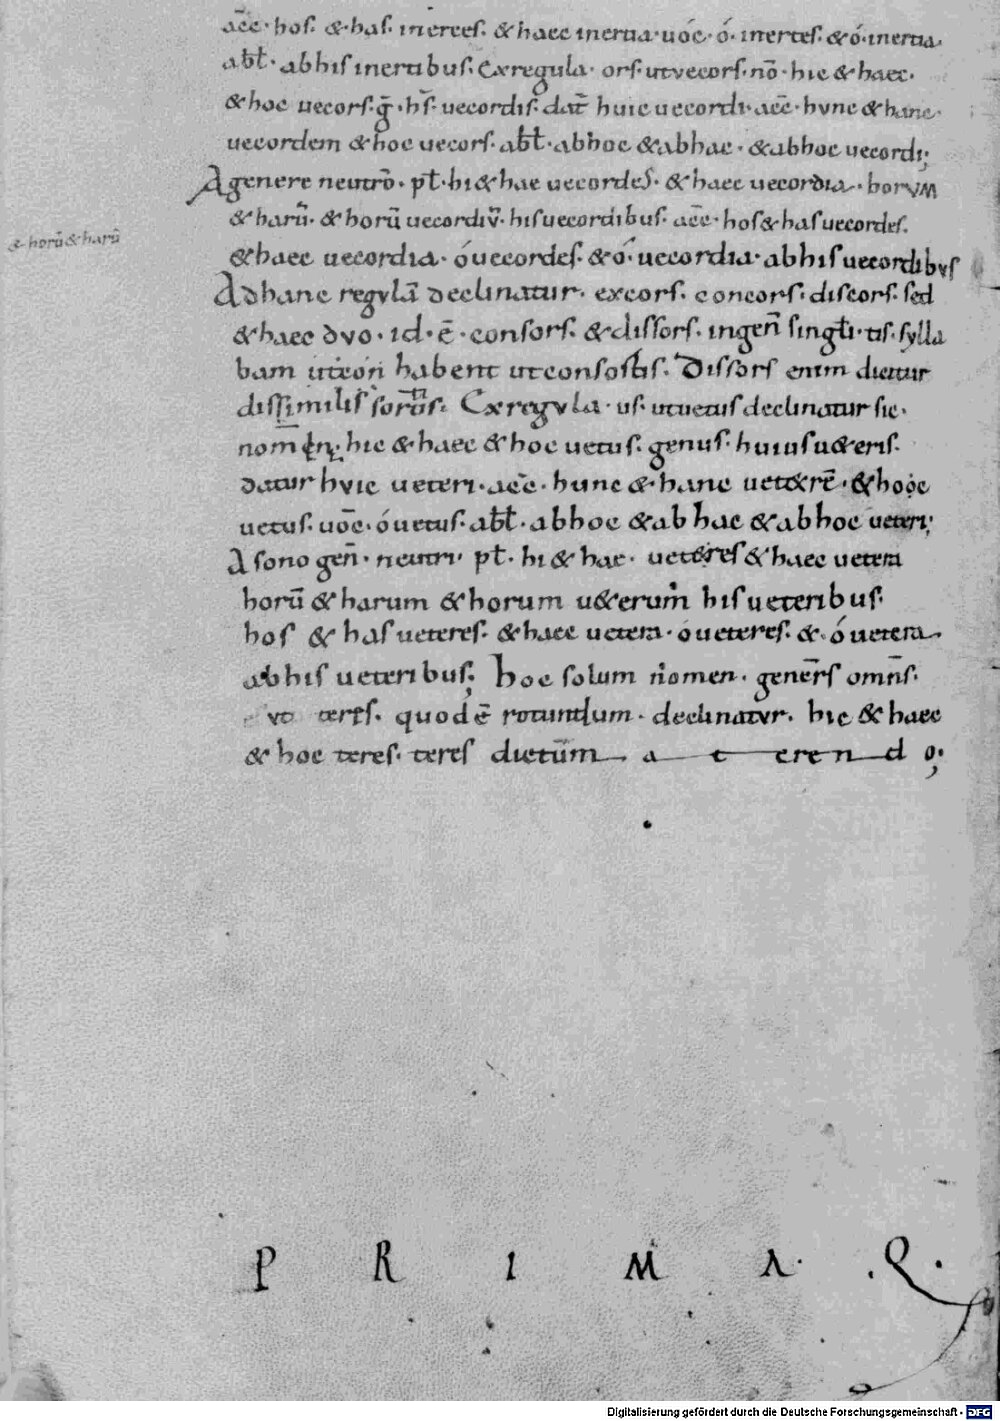 acc̄· hos. & has. inertes. & haec inertia· uōc· ó· inertes. & ó· inertia·
abl̄t· abhis inertibus. Exregula· ors· utvecors. nō· hic & haec·
& hoc uecors. ḡ· hs̄. uecordis. dat̄ huic uecordi· acc̄· hvnc & hanc·
uecordem & hoc uecors. abl̄t· abhoc & abhac· & abhoc uecordi;
A genere neutro· pl̄· hi & hae uecordes. & haec uecordia· horvm
& harū· & horū uecordiū· his uecordibus· acc̄· hos & has uecordes.
& horū & harū
& haec uecordia· ó uecordes. & ó· uecordia· abhis uecordibvs
Adhanc regvlā declinatur· excors· concors· discors· sed
& haec dvo· id· ē· consors. & dissors. in geñ singl̄i· tis· sylla
bam habent ut consortis. Dissors enim dicitur
dissimilis sortis. Exregvla· us· utuetus declinatur sic·
hic & haec & hoc uetus. genus. huius u&eris.
datur hvic ueteri· acc̄· hunc & hanc ueterē· & hooc
uetus. uōc· ó uetus. abl̄t· abhoc & ab hac & abhoc ueteri;
A sono geñ· neutri· pl̄· hi & hae· ueteres & haec uetera
horū & harum & horum u&erum his ueteribus.
hos & has ueteres. & haec uetera· ó ueteres. & ó uetera·
abhis ueteribus; hoc solum nomen· geners̄ omñs.
ut teres. quod ē rotundum· declinatvr. hic & haec
& hoc teres. teres dictūm a t e r e n d o;
P R I M A· .Q.
Digitalisierung gefördert durch die Deutsche Forschungsgemeinschaft - DFG